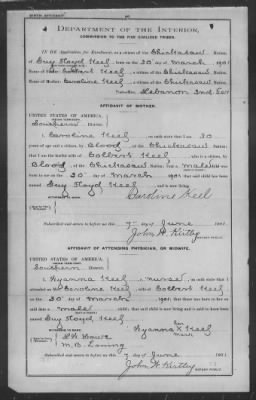 DEPARTMENT OF THE INTERIOR,
COMMISSION TO THE FIVE CIVILIZED TRIBES.
IN RE Application for Enrollment, as a citizen of the Chickasaw Nation,
of Guy Floyd Keel, born on the 30 day of March, 1901
Name of Father: Colbert Keel, a citizen of the Chickasaw Nation.
Name of Mother: Caroline Keel, a citizen of the Chickasaw Nation.
Lebanon Ind. Ter.
AFFIDAVIT OF MOTHER.
UNITED STATES OF AMERICA,
INDIAN TERRITORY,
Southern District.
I, Caroline Keel, on oath state that I am 30
years of age and a citizen, by Blood, of the Chickasaw Nation;
that I am the lawful wife of Colbert Keel, a citizen, by
Blood, of the Chickasaw Nation; that a male child was
born to me on the 30 day of March, 1901; that said child has been
named Guy Floyd Keel, and is now living.
Caroline Keel
Subscribed and sworn to before me this 7 day of June, 1901.
John H. Kirtley
NOTARY PUBLIC.
AFFIDAVIT OF ATTENDING PHYSICIAN, OR MIDWIFE.
UNITED STATES OF AMERICA,
INDIAN TERRITORY,
Southern District.
I, Kyanna Keel, a nurse, on oath state that I
attended on Mrs. Caroline Keel, wife of Colbert Keel
on the 30 day of March, 1901; that there was born to her on
said date a male child; that said child is now living and is said to have been
named Guy Floyd Keel.
her
Kyanna X Keel
mark
WITNESSES TO MARK:
W. B. Loving
Subscribed and sworn to before me this 7 day of June, 1901.
John H. Kirtley
NOTARY PUBLIC.